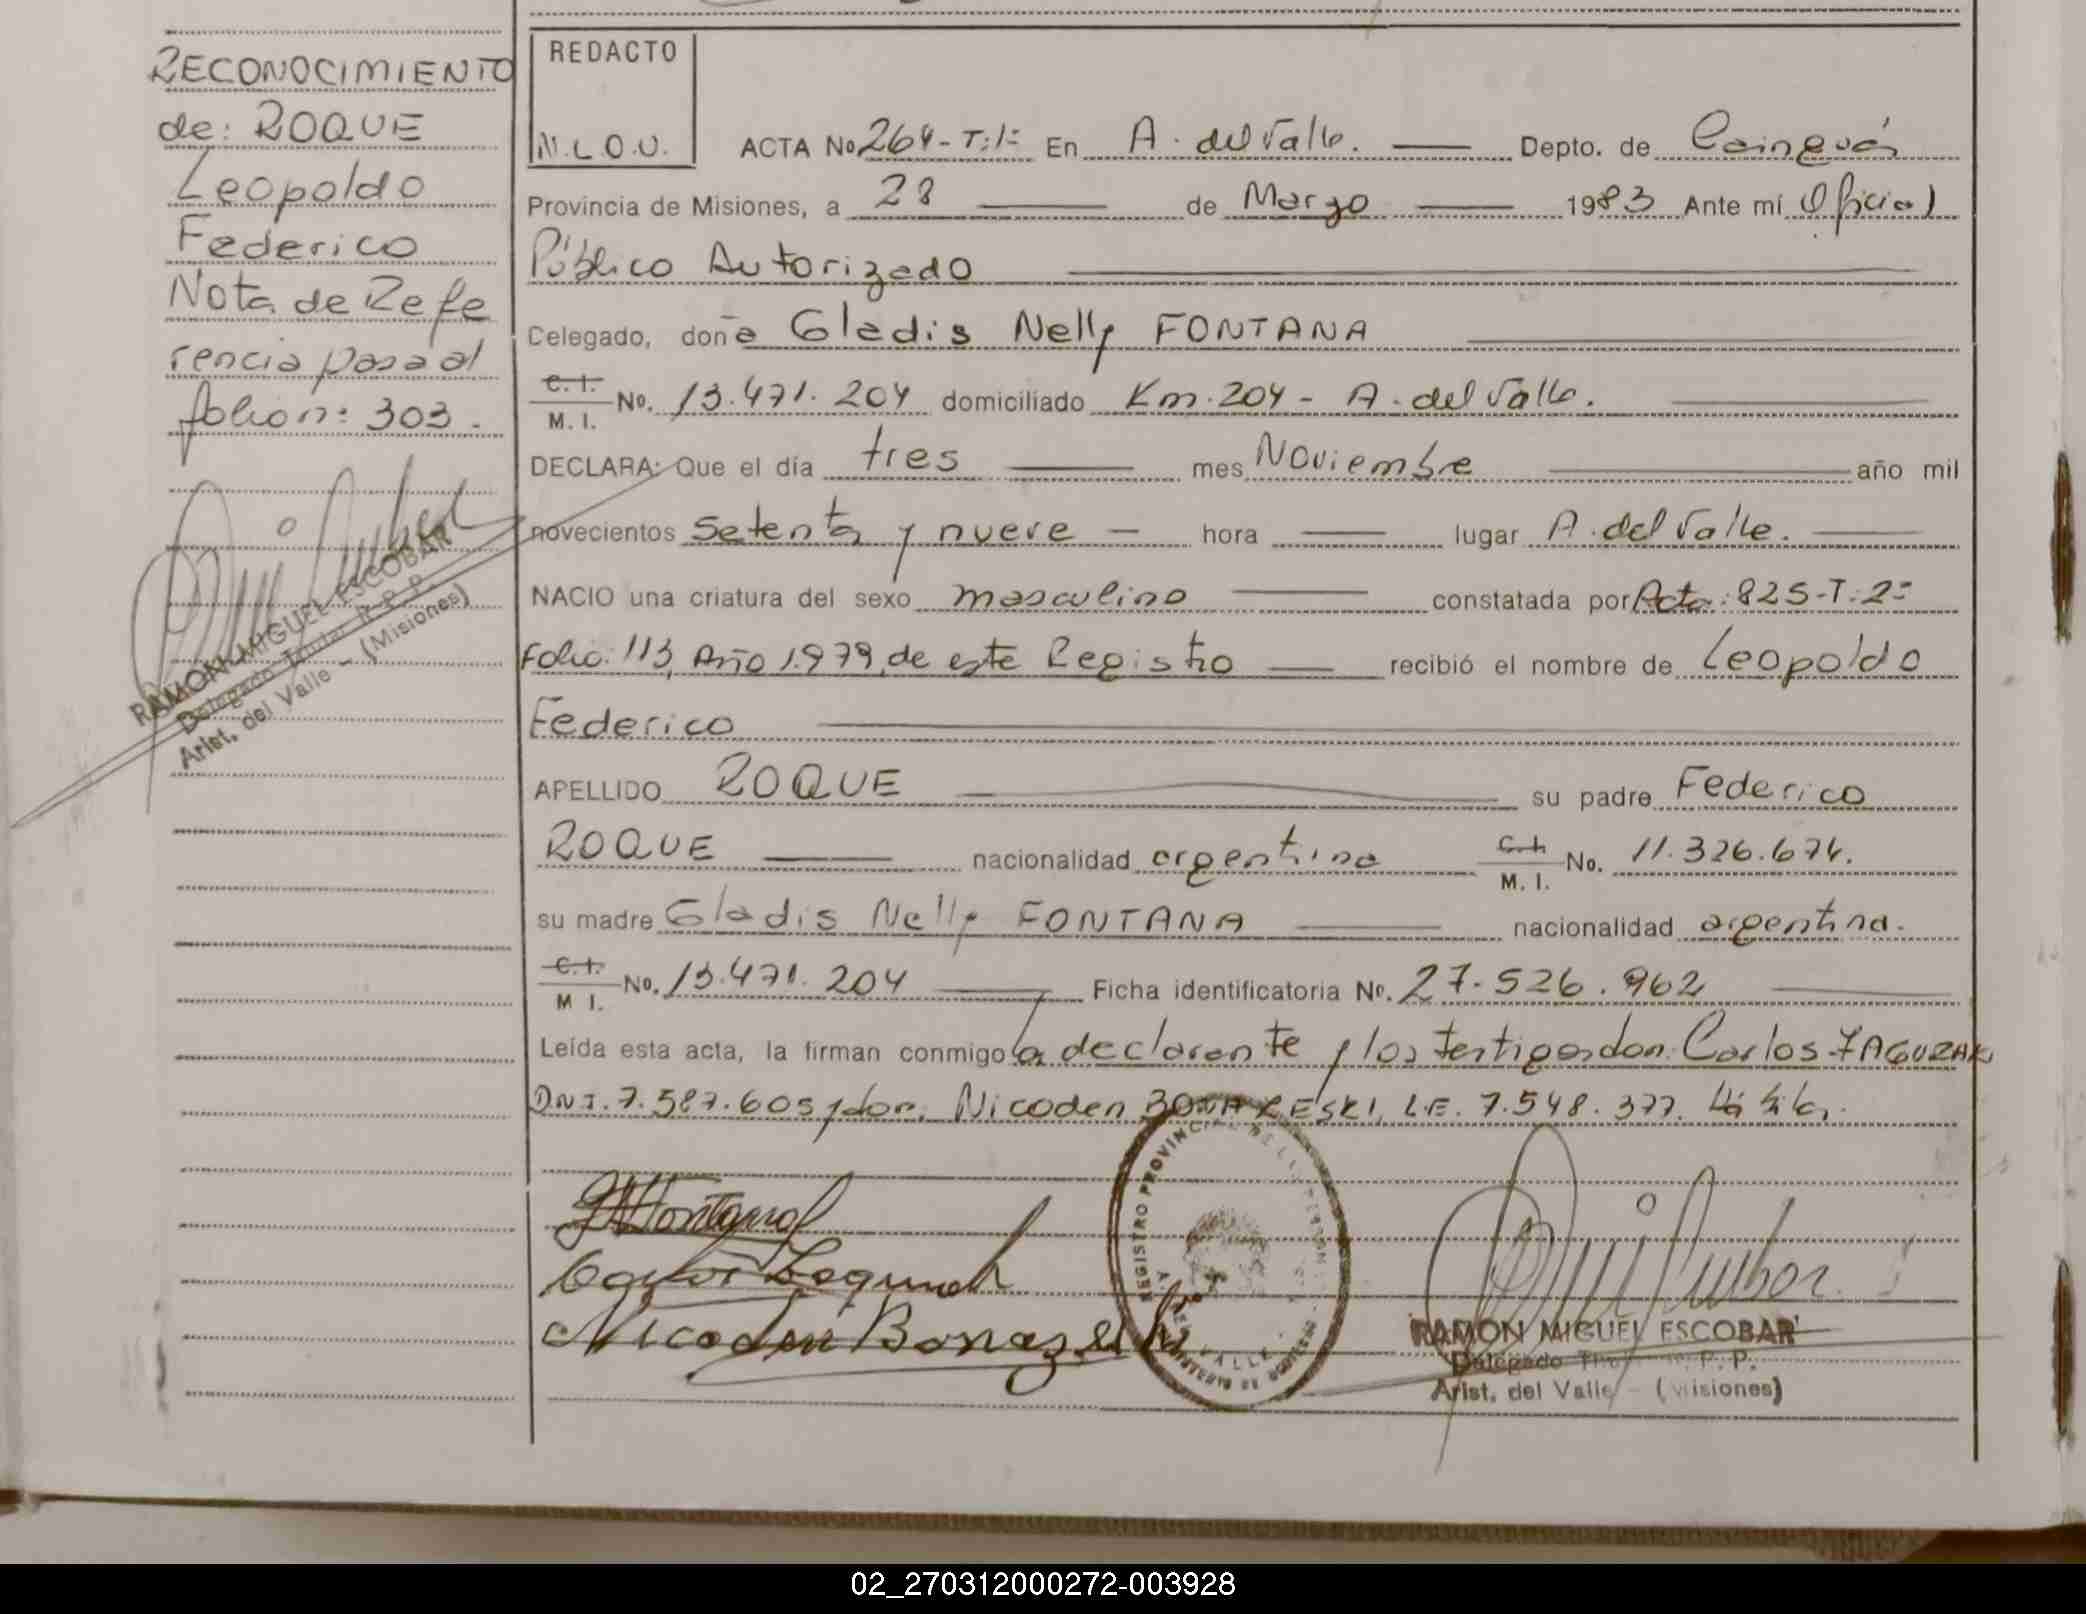 RECONOCIMIENTO
de: ROQUE
Leopoldo
Federico
Nota de Refe
rencia pasa al
folio n: 303.
RAMON MIGUEL ESCOBAR
Delegado Titular R. P. P.
Arist. del Valle - (Misiones)
REDACTO
N.L.O.U.
ACTA No 264-T:1= En A. del Valle. Depto. de Cainguás
Provincia de Misiones, a 28 de Marzo 1983 Ante mí Oficial
Público Autorizado
Celegado, doña Gladis Nelly FONTANA
C.I. M. I. No. 13.471.204 domiciliado Km. 204 - A. del Valle.
DECLARA: Que el día tres mes Noviembre año mil
novecientos setenta y nueve - hora lugar A. del Valle.
NACIO una criatura del sexo masculino constatada por Acta: 825-T:2=
Folio: 113, Año 1.979, de este Registro recibió el nombre de Leopoldo
Federico
APELLIDO ROQUE su padre Federico
ROQUE nacionalidad argentina C.I. M. I. No. 11.326.674.
su madre Gladis Nelly FONTANA nacionalidad argentina.
C.I. M I. No. 13.471.204 Ficha identificatoria No. 27.526.962
Leída esta acta, la firman conmigo la declarante y los testigos don: Carlos
DNI. 7.587.605 y don: Nicoden L.E. 7.548.377.
Nicoden
REGISTRO PROVINCIAL DE
VALLE
RAMON MIGUEL ESCOBAR
Delegado P. P.
Arist. del Valle - (Misiones)
02_270312000272-003928